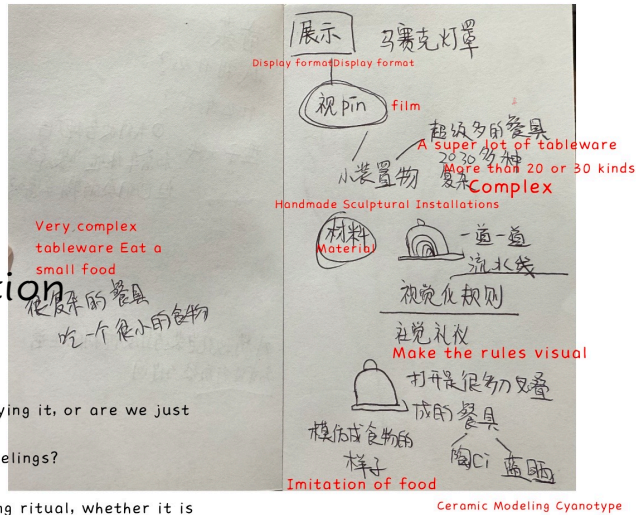 展示
马赛克灯罩
Display formatDisplay format
视pin
film
超级多的餐具
A super lot of tableware
20 30 多种
More than 20 or 30 kinds
小装置物
复杂
Complex
Handmade Sculptural Installations
材料
Material
一道一道
流水线
视觉化规则
Make the rules visual
打开是很多刀叉叠
成的餐具
模仿成食物的
样子
陶Ci
蓝晒
Imitation of food
Ceramic Modeling Cyanotype
Very complex
tableware Eat a
small food
tion
很复杂的餐具
吃一个很小的食物
ying it, or are we just
elings?
ng ritual, whether it is